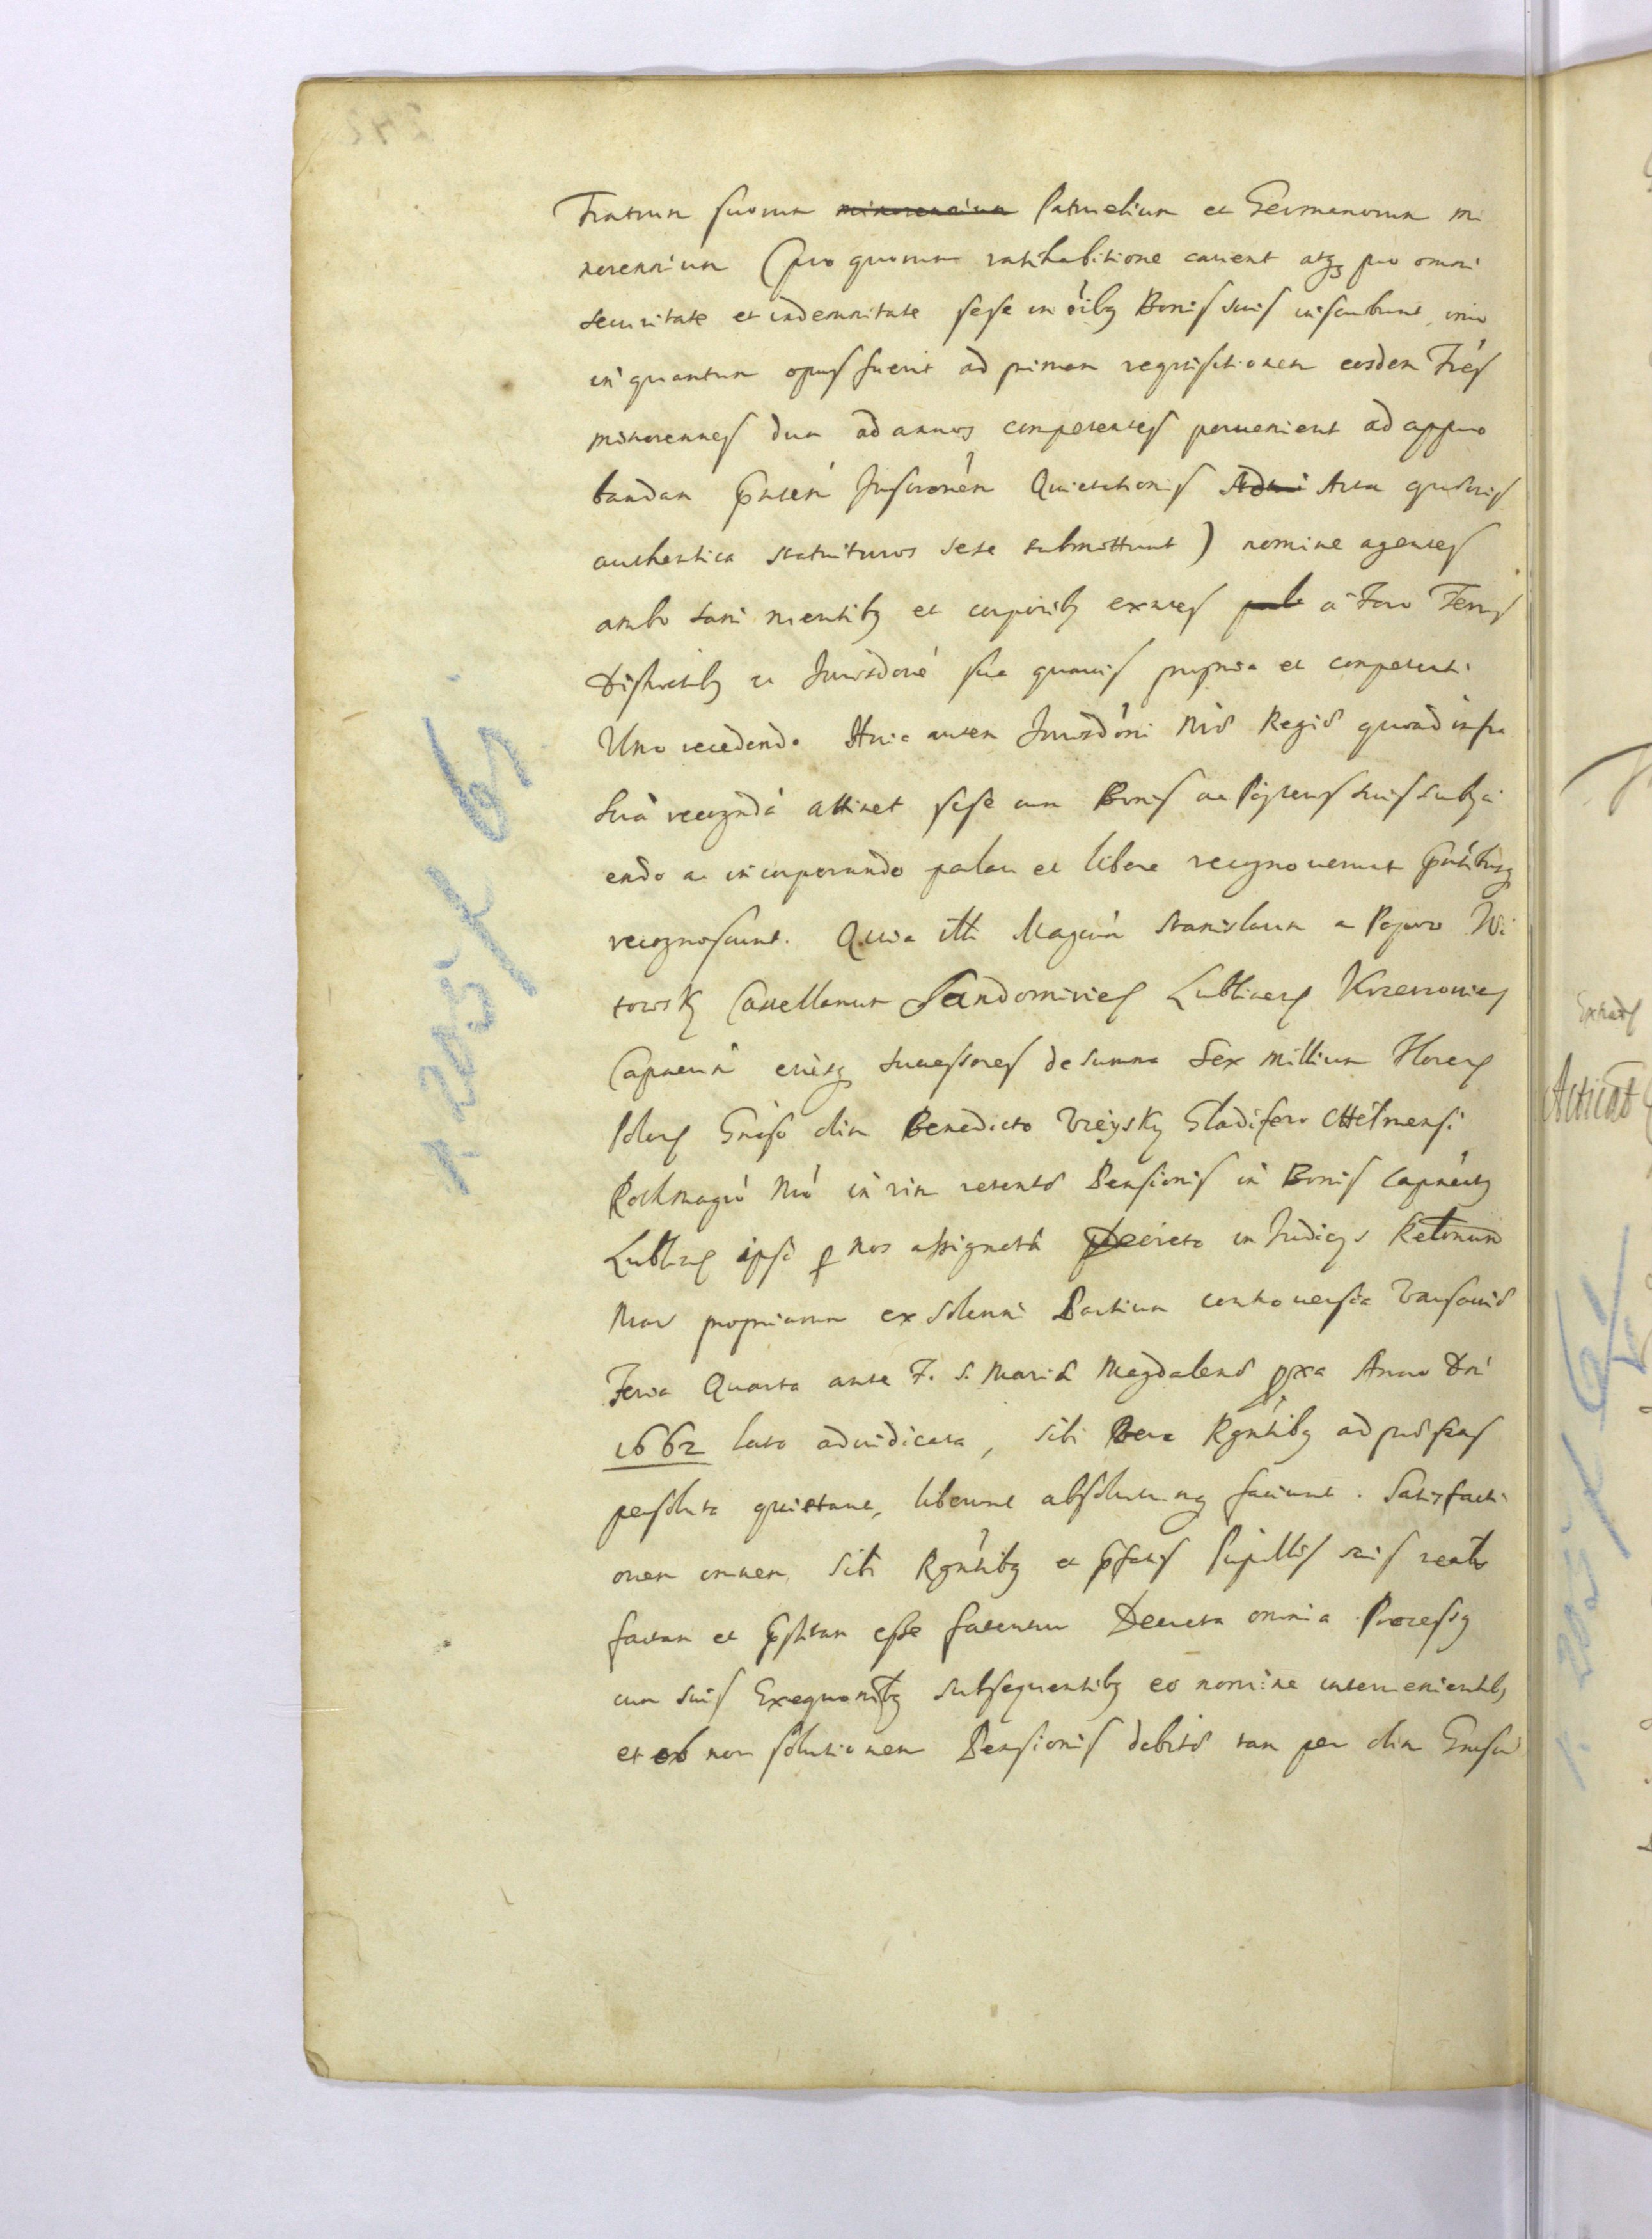 Fratrum suorum minorennium Patruelium et Germanorum mi
norennium (pro quorum ratihabitione cavent atq pro omni
securitate et indemnitate sese in oibq Bonis suis inscribunt, imo
in quantum opus fuerit ad primam requisitionem eosdem Fres
minorennes dum ad annos competentes pervenient ad appro
bandam pntem Inscronem Quietationis Acta quaevis
authentica statuituros sese submittunt) nomine agentes
ambo sani mentibq et corporibq exntes a Foro Terris
Districtibq et Jurisdone sua quavis propria et competenti
Uno recedendo Huic autem Jurisdoni Nrae Regiae quoad infra
scra recognda attinet sese cum Bonis ac suis subyci
endo ac incorporando palam et libere recognoverunt pntibusq
recognoscunt. Quia Magcum Stanislaum a Popow Wi
towsky Castellanum Sandomirien Lublinens Krzerrovien
Capneum eiusq successores de summa Sex millium Floren
Polon Gnoso olim Benedicto Ureysky Gladifero Chelmensi
Rothmagro Nro in vim retentae Pensionis in Bonis Capneatq
Lublinen ipsi p nos assignata Decreto in Judicys Relonum
Nrar propriarum ex solenni Partium controversia Varsaviae
Feria Quarta ante F. S. Mariae Magdalenae pxa Anno Dni
1662 lato adiudicata, sibi Rgntibq ad praesens
persoluta quietant, liberunt absolutumq faciunt. Satisfacti
onem sibi Rgntibq et pfatis Pupillis suis realr
factam et pstitam esse fatentur Decreta omnia Processq
cum suis Exequonibq subsequentibq eo nomine intervenientibq
et ob non solutionem Pensionis debitae tam per olim Gnosum